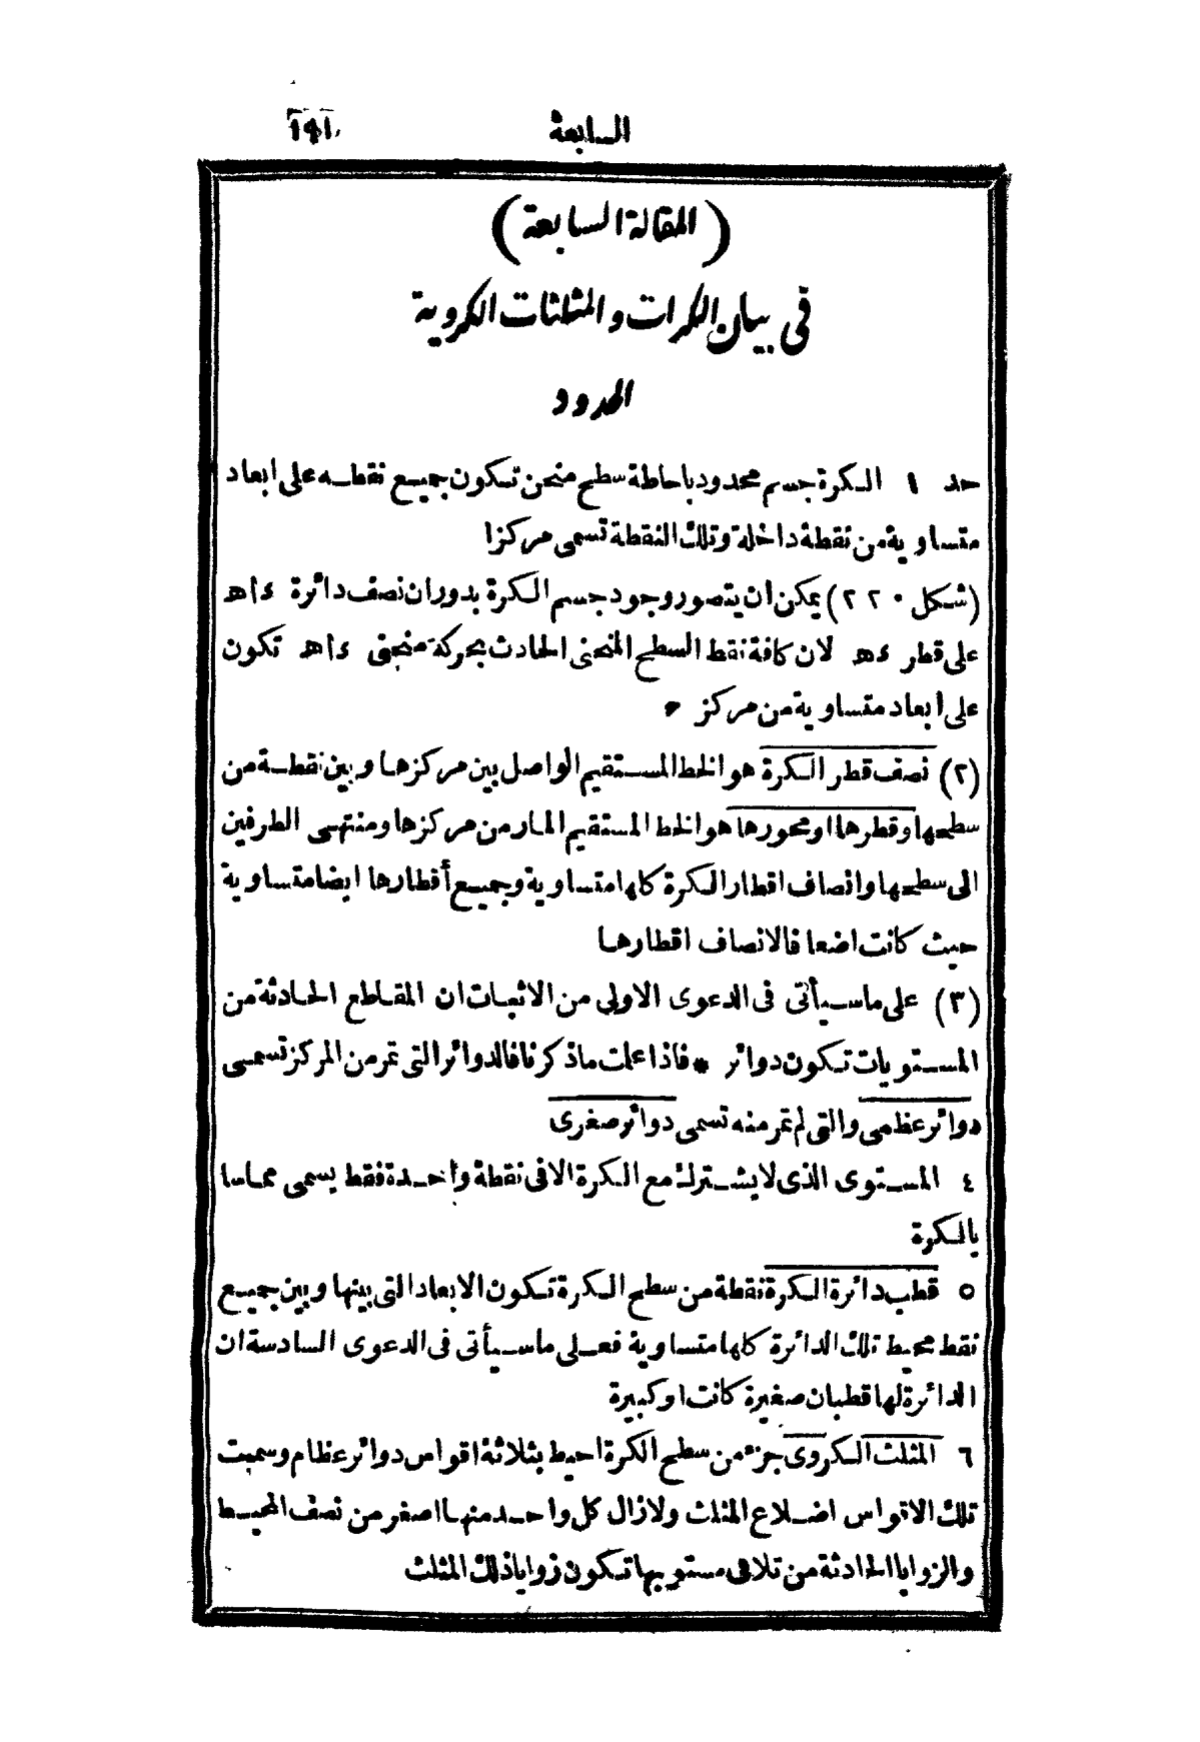 السابعة ١٩١
(المقالة السابعة)
فى بيان الكرات والمثلثات الكروية
الحدود
حد ١ الكرة جسم محدود باحاطة سطح منحن تكون جميع نقطه على ابعاد
متساوية من نقطة داخلة وتلك النقطة تسمى مركزا
(شكل ٢٢٠) يمكن ان يتصور وجود جسم الكرة بدوران نصف دائرة ءاه
على قطر ءه لان كافة نقط السطح المنحنى الحادث بحركة منحنى ءاه تكون
على ابعاد متساوية من مركز م
(٢) نصف قطر الكرة هو الخط المستقيم الواصل بين مركزها وبين نقطة من
سطحها وقطرها او محورها هو الخط المستقيم المار من مركزها ومنتهى الطرفين
الى سطحها وانصاف اقطار الكرة كلها متساوية وجميع أقطارها ايضا متساوية
حيث كانت اضعافا لانصاف اقطارها
(٣) على ما سيأتى فى الدعوى الاولى من الاثبات ان المقاطع الحادثة من
المستويات تكون دوائر * فاذا علمت ماذكرنا فالدوائر التى تمر من المركز تسمى
دوائر عظمى والتى لم تمر منه تسمى دوائر صغرى
٤ المستوى الذى لا يشترك مع الكرة الا فى نقطة واحدة فقط يسمى مماسا
بالكرة
٥ قطب دائرة الكرة نقطة من سطح الكرة تكون الابعاد التى بينها وبين جميع
نقط محيط تلك الدائرة كلها متساوية فعلى ما سيأتى فى الدعوى السادسة ان
الدائرة لها قطبان صغيرة كانت او كبيرة
٦ المثلث الكروى جزء من سطح الكرة احيط بثلاثة اقواس دوائر عظام وسميت
تلك الاقواس اضلاع المثلث ولازال كل واحد منها اصغر من نصف المحيط
والزوايا الحادثة من تلاقى مستويها تكون زوايا ذلك المثلث